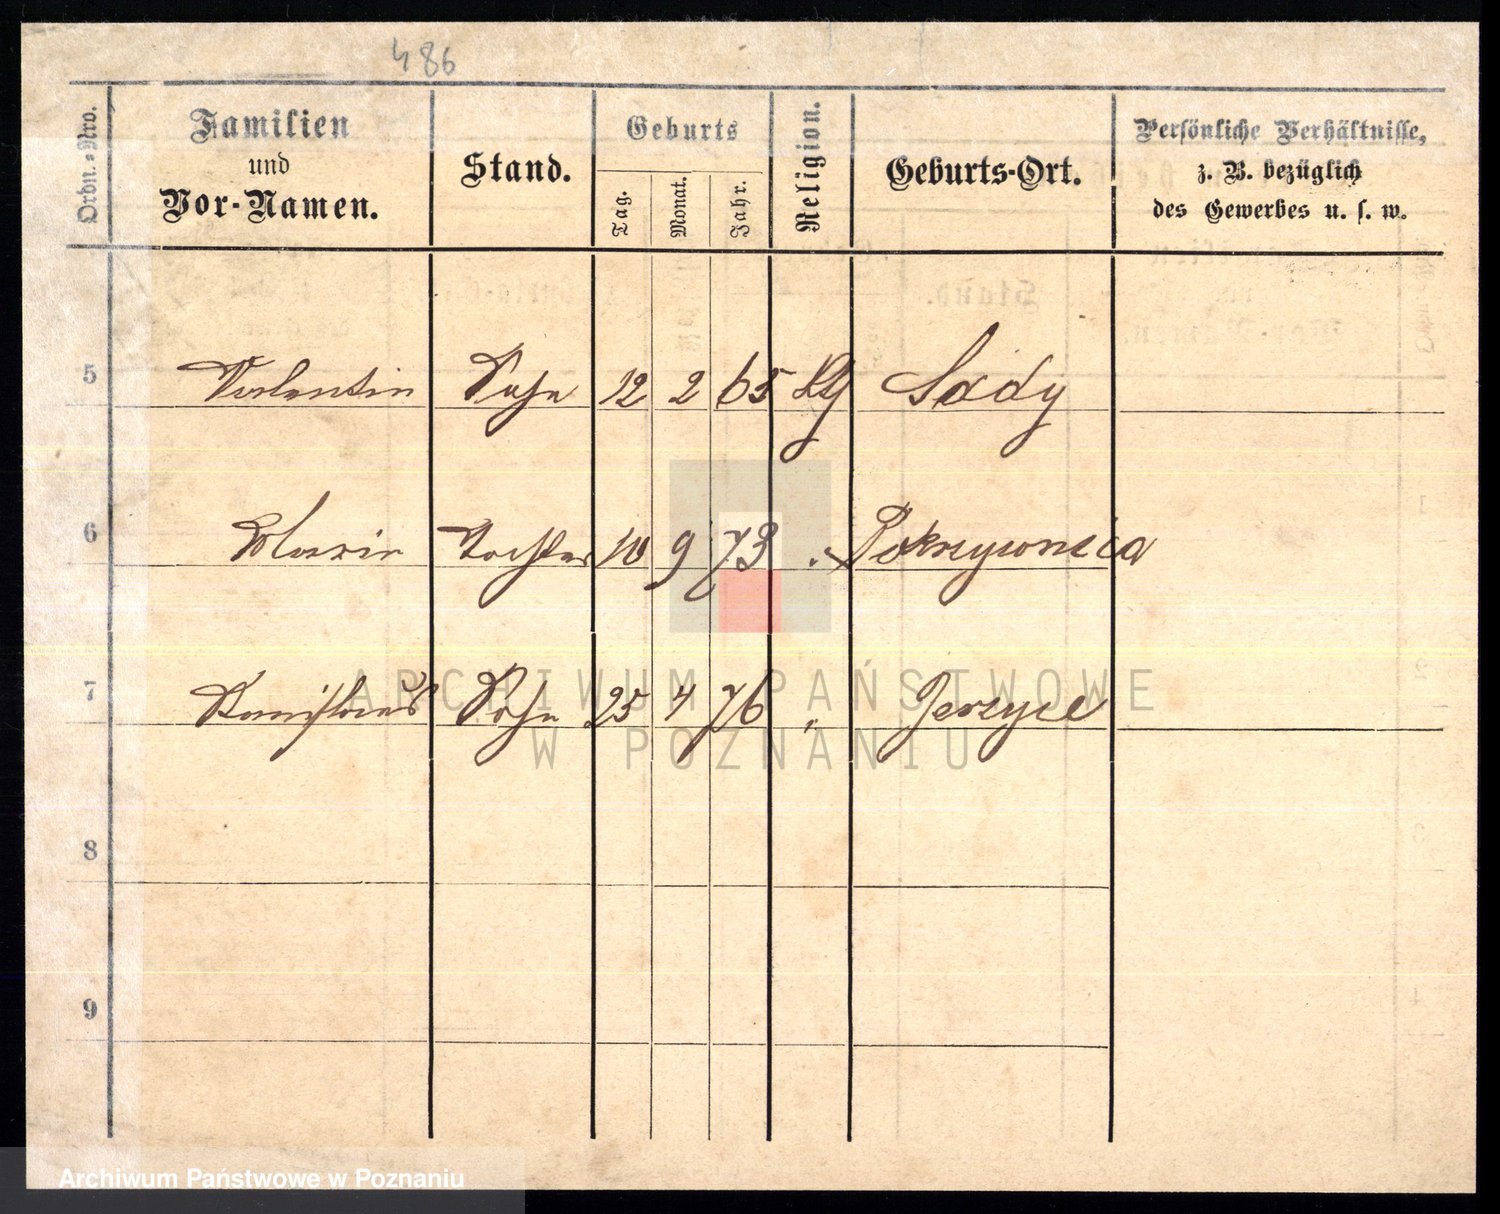 486
Ordn.-Nro. Familien und Vor-Namen. Stand. Geburts Tag. Monat. Jahr. Religion. Geburts-Ort. Persönliche Verhältnisse, z. B. bezüglich des Gewerbes u. s. w.
5 Valentin Sohn 12 2 65 Sady
6 Marie Tochter 10 9 73 " Pokrzywnica
7 Stanislaus Sohn 25 4 76 " Jerzyce
8
9
ARCHIWUM PAŃSTWOWE
W POZNANIU
Archiwum Państwowe w Poznaniu